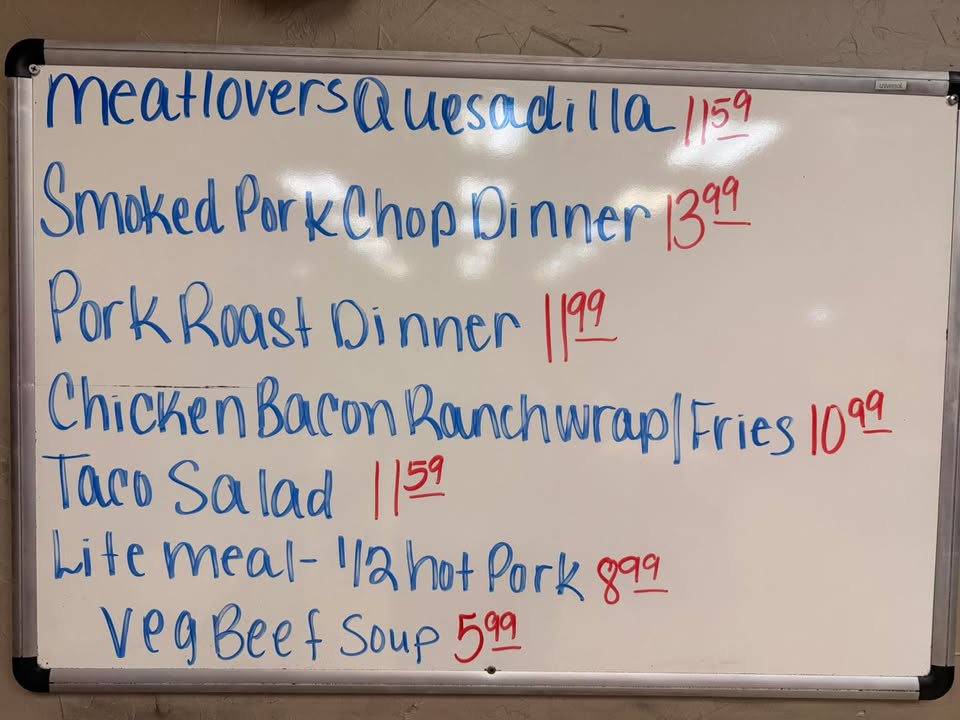 Meatlovers Quesadilla 11 59
Smoked Pork Chop Dinner 13 99
Pork Roast Dinner 11 99
Chicken Bacon Ranch wrap/Fries 10 99
Taco Salad 11 59
Lite meal - 1/2 hot Pork 8 99
Veg Beef Soup 5 99
universal